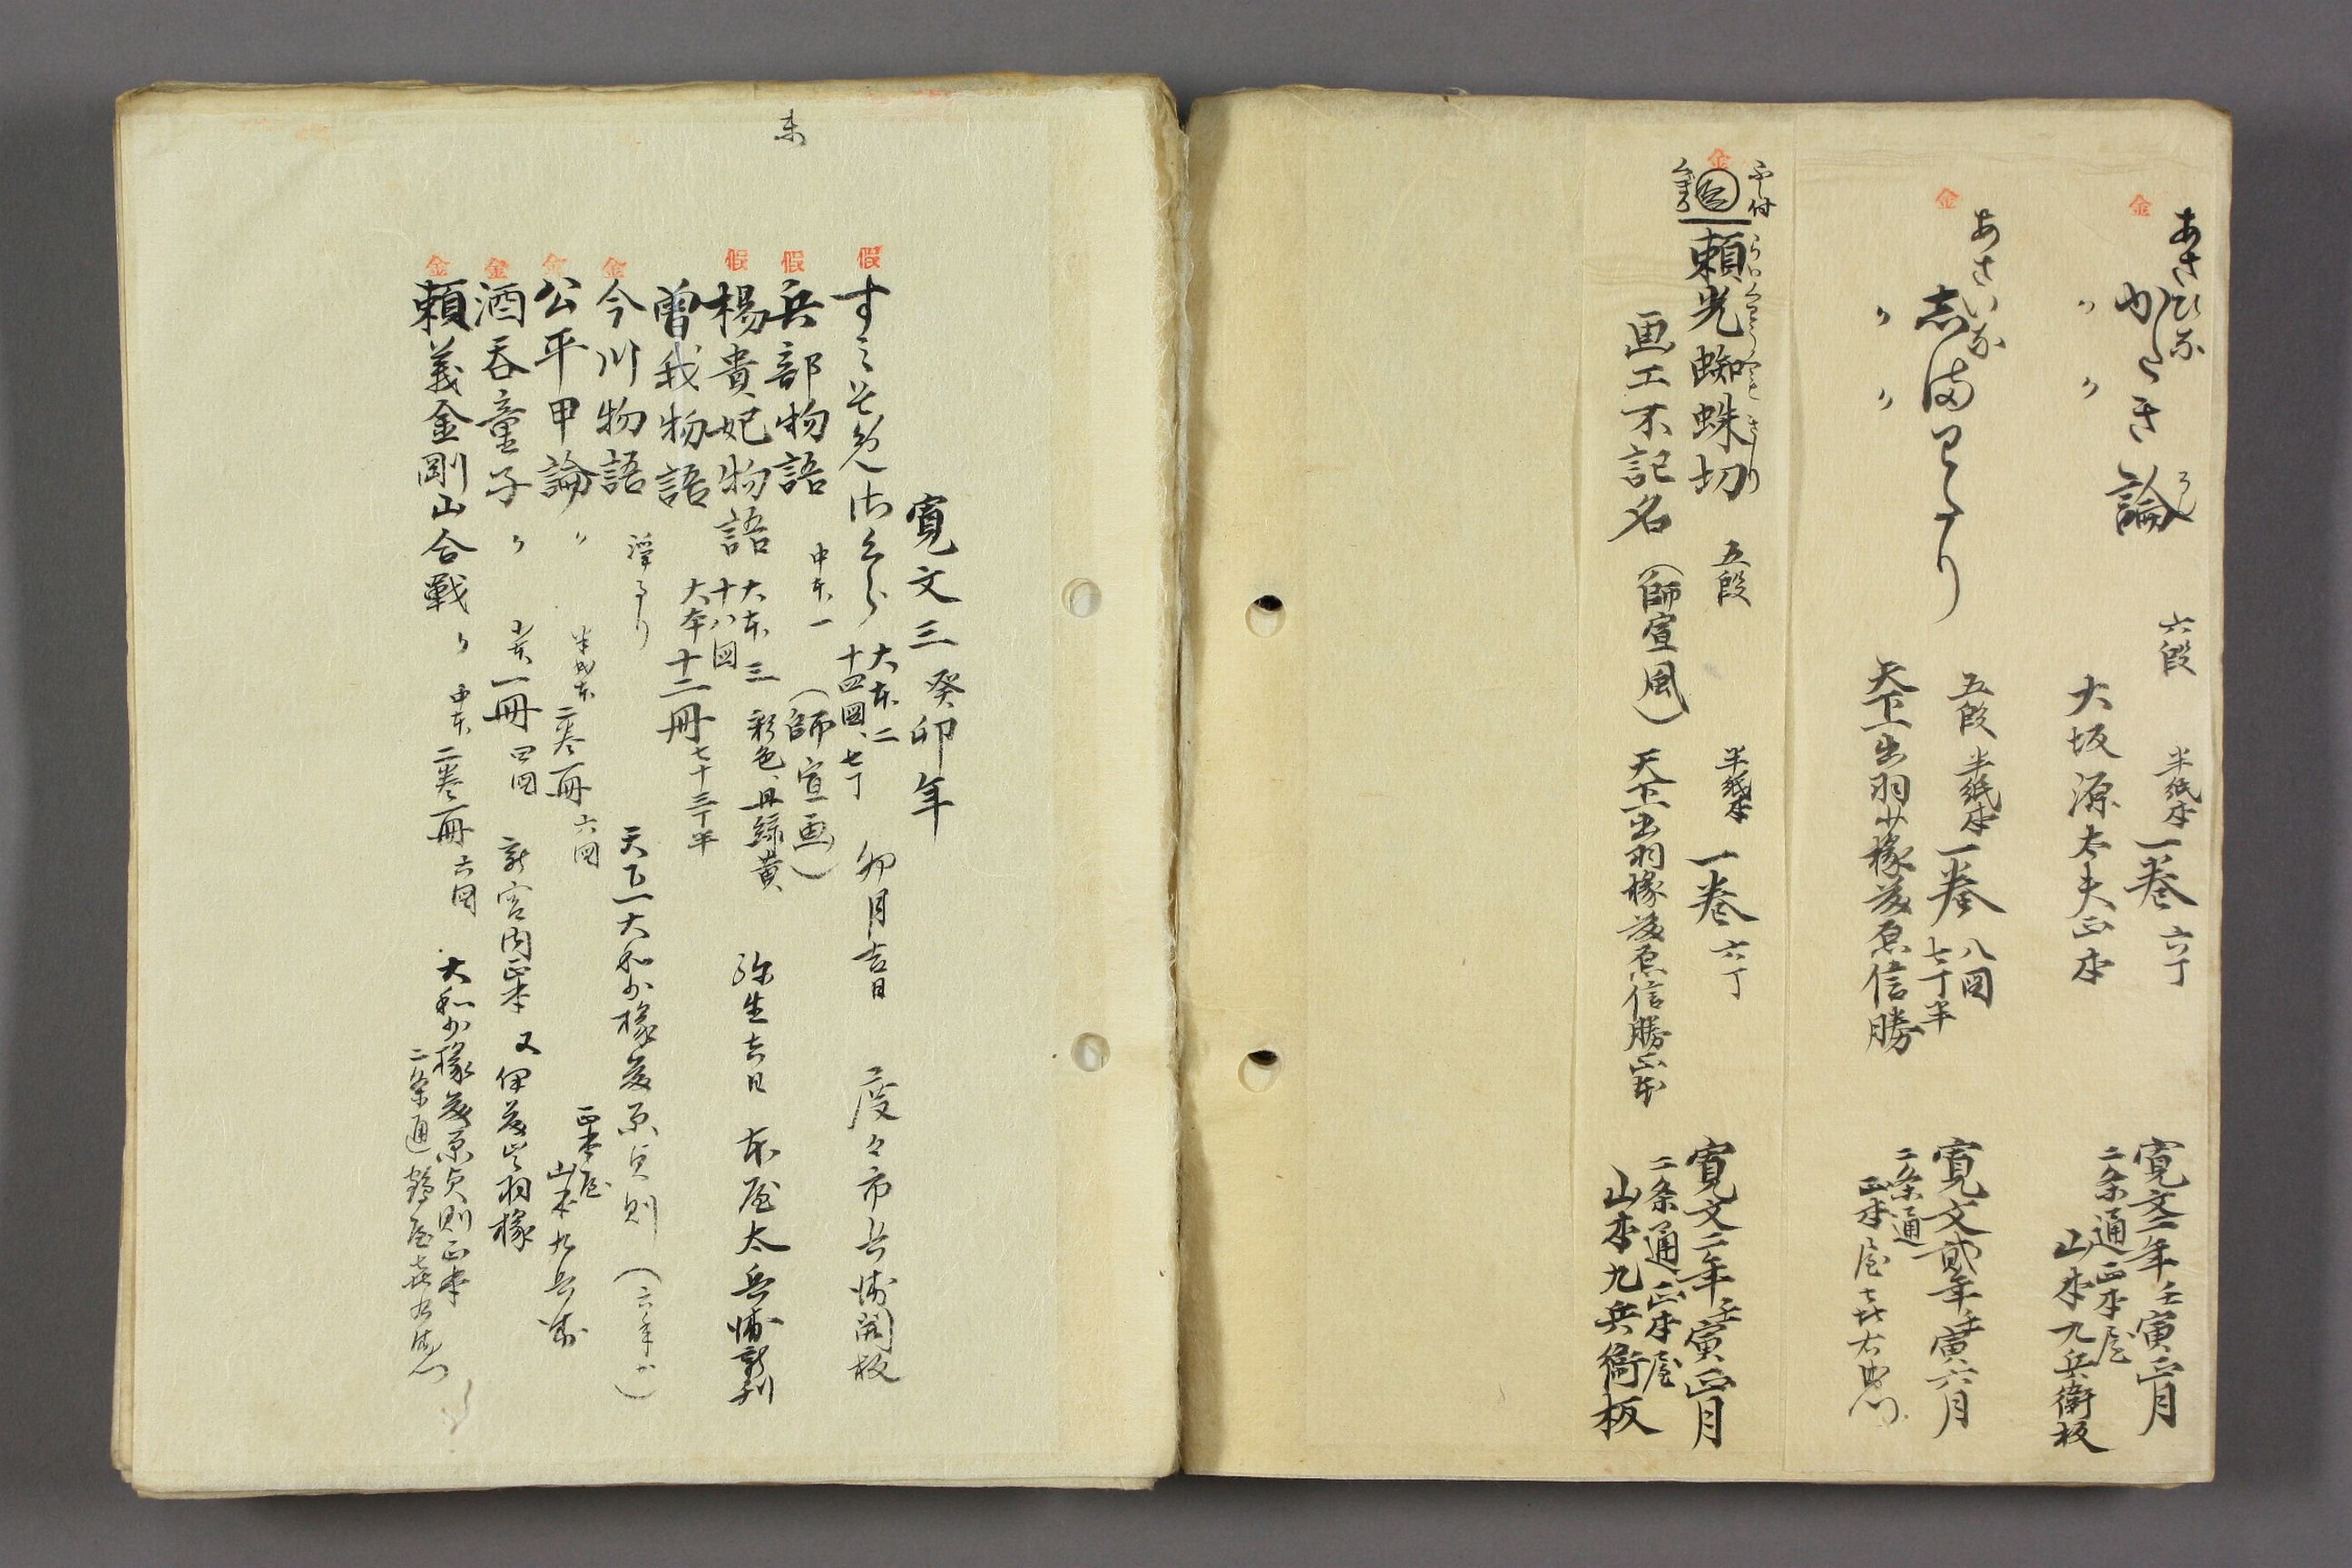 金
あさひな
かたき論
ろん
〃 〃
六段
半紙本一巻 六丁
大坂源太夫正本
寛文二年壬寅正月
二条通正本屋
山本九兵衛板
金
あさいな
志まわたり
〃 〃
五段 半紙本一巻 八図
七丁半
天下一出羽少掾藤原信勝
寛文貳年壬寅六月
二条通
正本屋喜右衛門
金
ふし付
頼光蜘蛛切 五段 半紙本 一巻 六丁
画工不記名(師宣風) 天下一出羽掾藤原信勝正本
寛文二年壬寅正月
二条通正本屋
山本九兵衛板
未
寛文三癸卯年
假
大本二
十四図、七丁
卯月吉日
度々市兵衛開板
假
兵部物語 中本一 (師宣画)
假
楊貴妃物語 大本三 彩色、丹緑黄
十八図
弥生吉日 本屋太兵衛新刊
曽我物語 大本十二冊 七十三丁半
金
今川物語 浄るり 天下一大和少掾藤原貞則 (六年か)
金
公平甲論 〃 半紙本 二巻一冊 六図
正本屋
山本九兵衛
金
酒呑童子 〃 小本一冊 四図 新宮内正本 又伊藤出羽掾
金
頼義金剛山合戦 〃 中本 二巻一冊 六図
大和少掾藤原貞則正本
二条通鶴屋喜右衛門